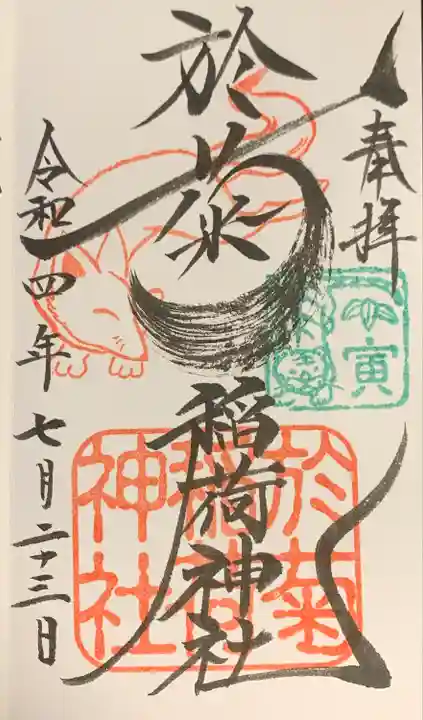 奉拝
於菊
稲荷神社
令和四年七月二十三日
寅
於菊
稲荷
神社